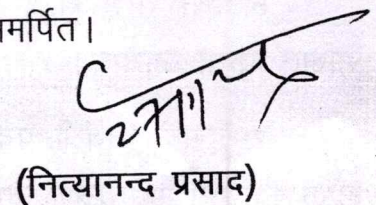 मर्पित।
(नित्यानन्द प्रसाद)